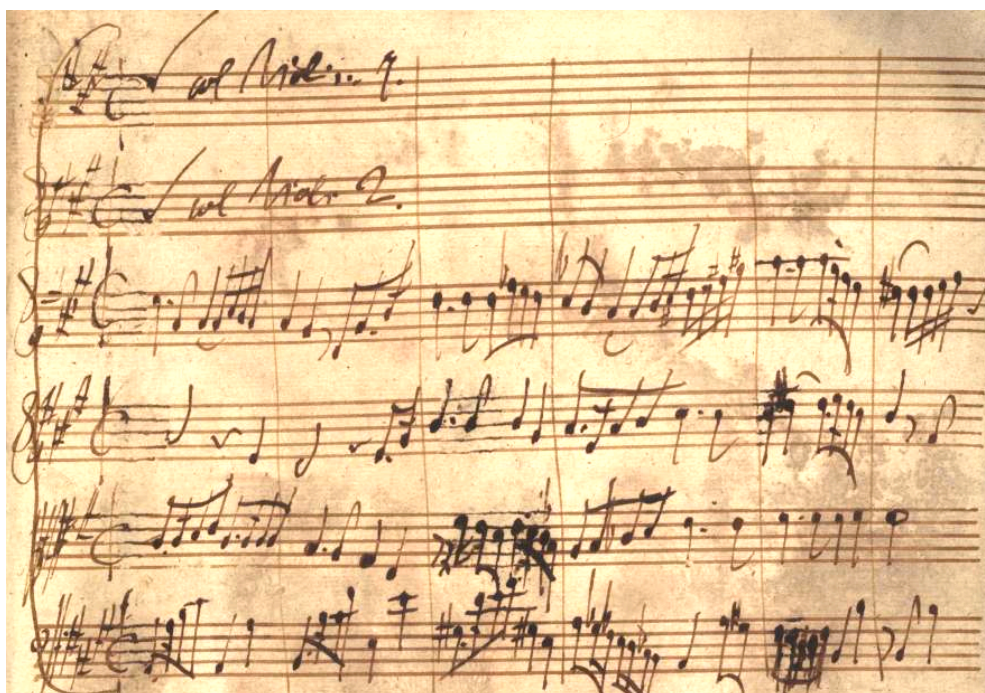 col Viol: 1.
col Viol: 2.